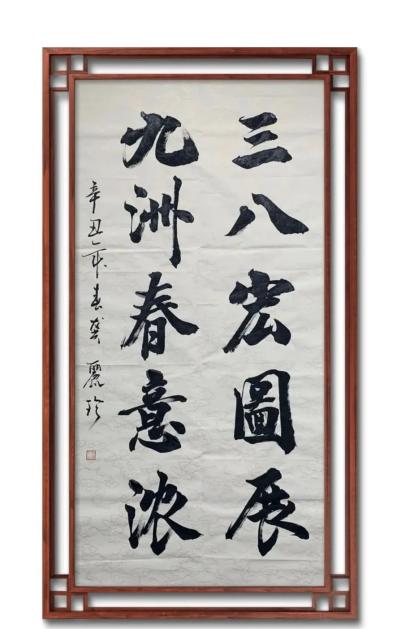 三八宏圖展
九洲春意浓
辛丑年春龔麗珍